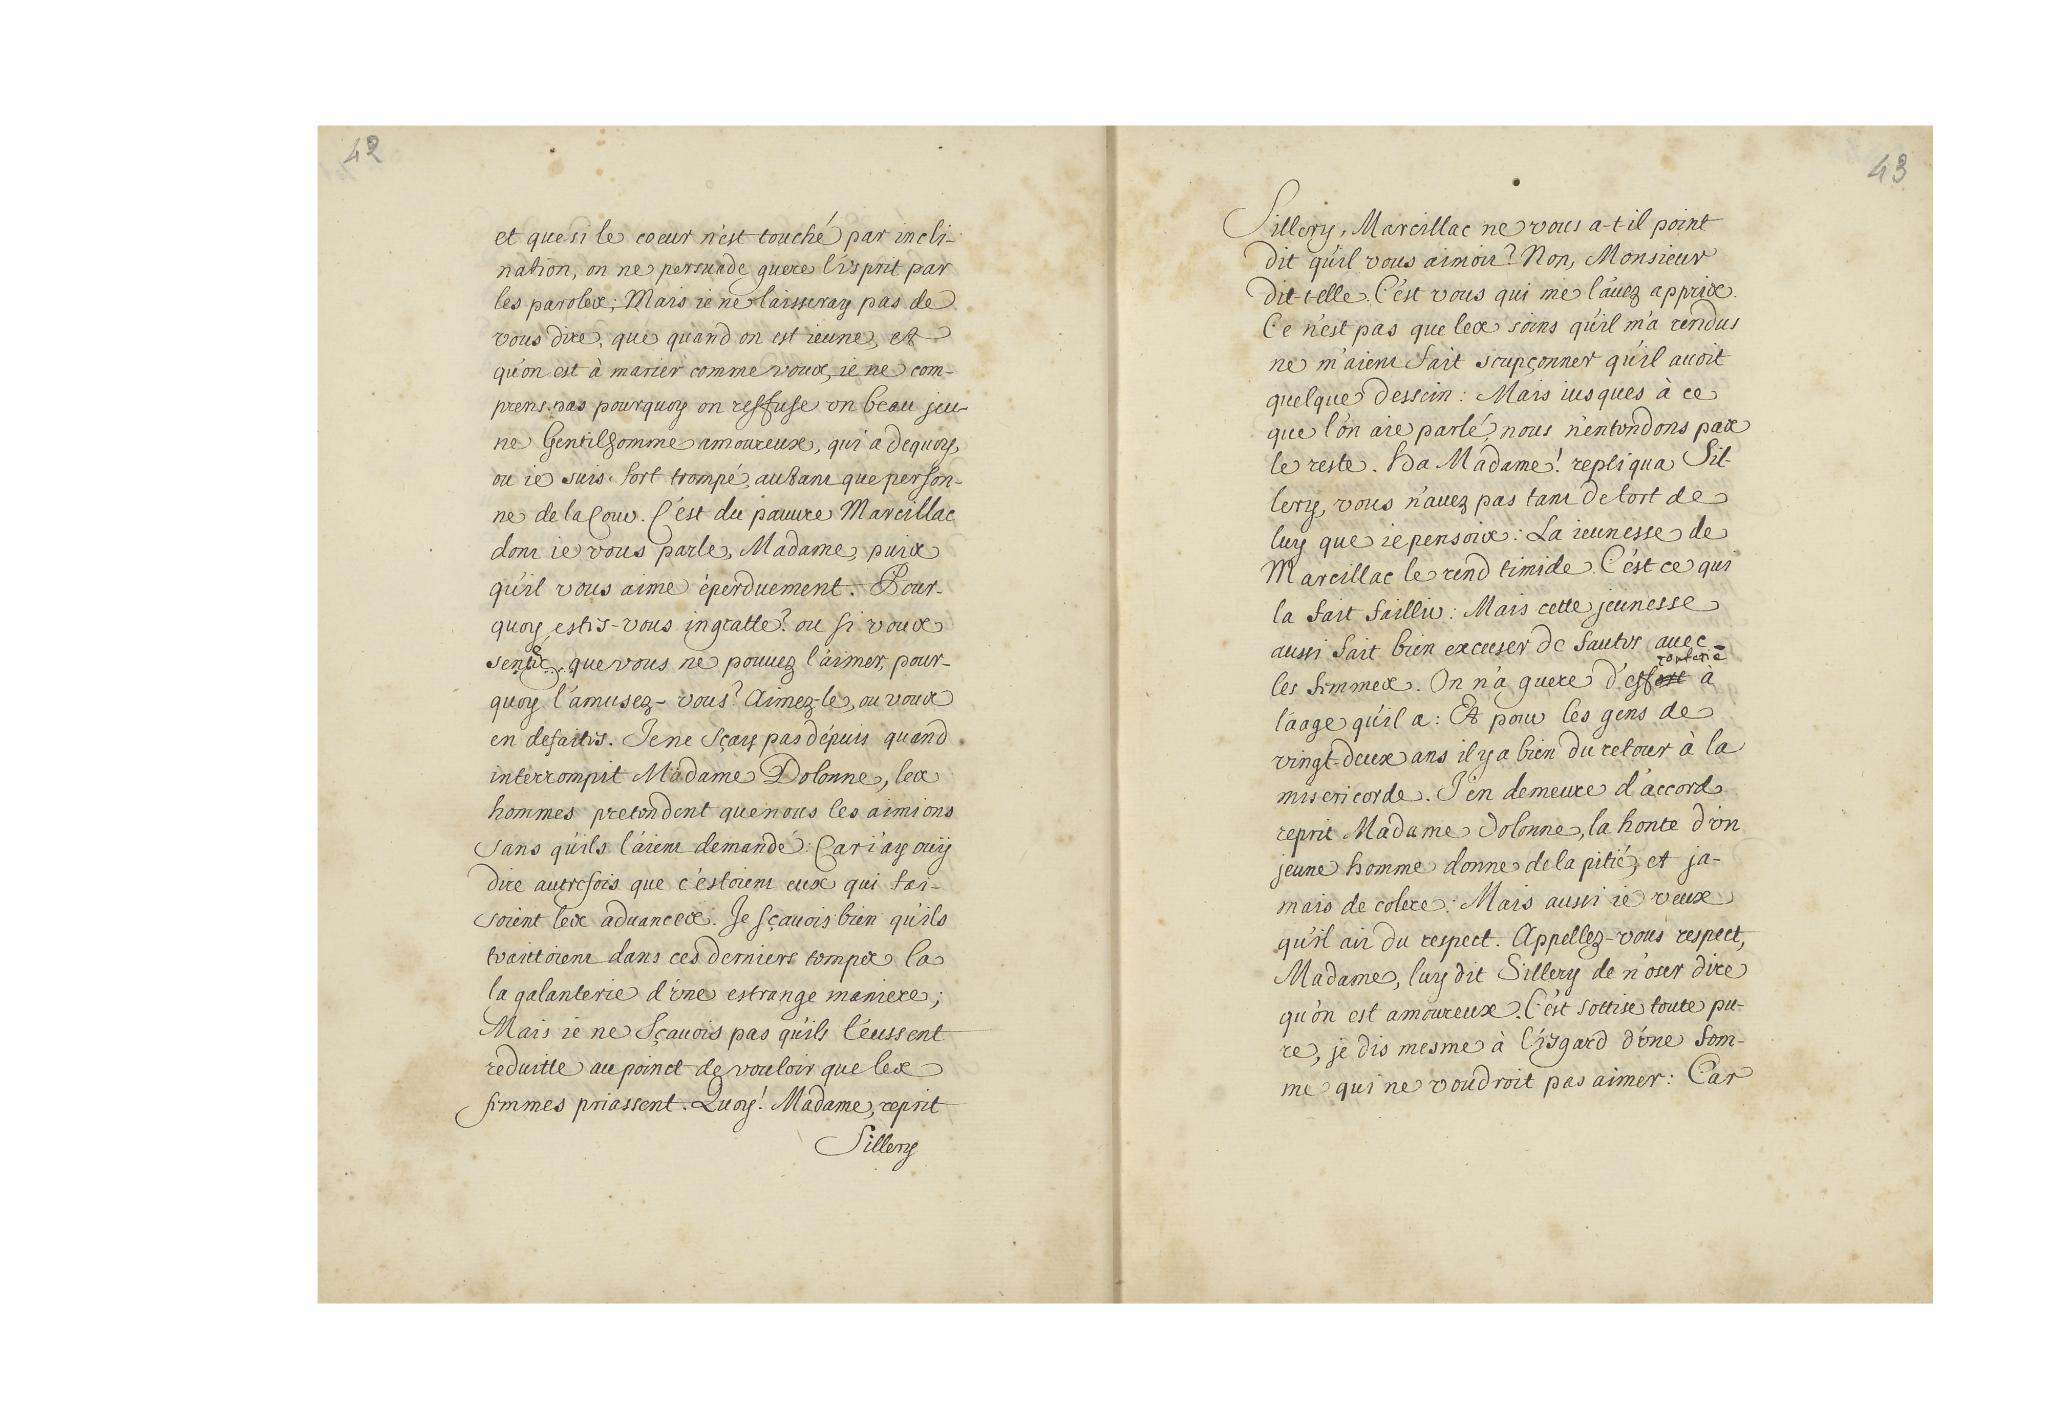 42
et que si le coeur n'est touché par incli-
nation, on ne persuade guere l'esprit par
les paroles; Mais ie ne laisseray pas de
vous dire, que quand on est ieune, et
qu'on est à marier comme vous, ie ne com-
prens pas pourquoy on reffuse vn beau jeu-
ne Gentilhomme amoureux, qui a dequoy,
ou ie suis fort trompé, autant que person-
ne de la Cour. C'est du pauure Marcillac
dont ie vous parle, Madame, puis
qu'il vous aime éperduement. Pour-
quoy estes-vous ingratte? ou si vous
sentéz que vous ne pouuez l'aimer, pour-
quoy l'amusez-vous? Aimez-le, ou vous
en defaites. Ie ne sçay pas dépuis quand
interrompit Madame Dolonne, les
hommes pretendent que nous les aimions
sans qu'ils l'aient demandé: Car i'ay oüy
dire autrefois que c'estoient eux qui fai-
soient les aduances. Je sçauois bien qu'ils
traittoient dans ces derniers temps la
la galanterie d'vne estrange maniere;
Mais ie ne sçauois pas qu'ils l'eussent
reduitte au poinct de vouloir que les
femmes priassent. Quoy! Madame, reprit
Sillery
43
Sillery, Marcillac ne vous a-t-il point
dit qu'il vous aimoit? Non, Monsieur
dit-elle. C'est vous qui me l'auez appris.
Ce n'est pas que les soins qu'il m'a rendus
ne m'aient fait soupçonner qu'il auoit
quelque dessein: Mais iusques à ce
que l'on aie parlé, nous n'entendons pas
le reste. Ha Madame! repliqua Sil-
lery, vous n'auez pas tant de tort de
luy que ie pensois: La ieunesse de
Marcillac le rend timide. C'est ce qui
la fait faillir: Mais cette jeunesse
aussi fait bien excuser de fautes auec
les femmes. On n'a guere d'effronterie à
l'aage qu'il a: Et pour les gens de
vingt-deux ans il y a bien du retour à la
misericorde. J'en demeure d'accord
reprit Madame Dolonne, la honte d'vn
jeune homme donne de la pitié, et ja-
mais de colere: Mais aussi ie veux
qu'il ait du respect. Appellez-vous respect,
Madame, luy dit Sillery de n'oser dire
qu'on est amoureux. C'est sottise toute pu-
re, je dis mesme à l'esgard d'vne fem-
me qui ne voudroit pas aimer: Car